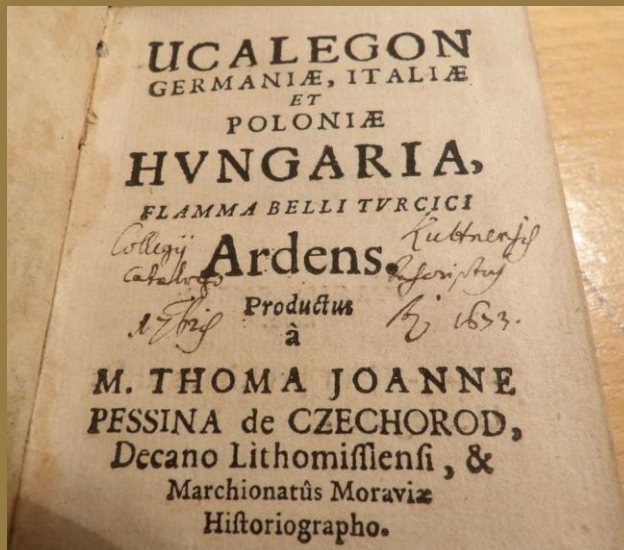 UCALEGON
GERMANIÆ, ITALIÆ
ET
POLONIÆ
HVNGARIA,
FLAMMA BELLI TVRCICI
Collegij
catalogo
Ardens.
Productus
à
M. THOMA JOANNE
PESSINA de CZECHOROD,
Decano Lithomiſſienſi, &
Marchionatûs Moraviæ
Hiſtoriographo.